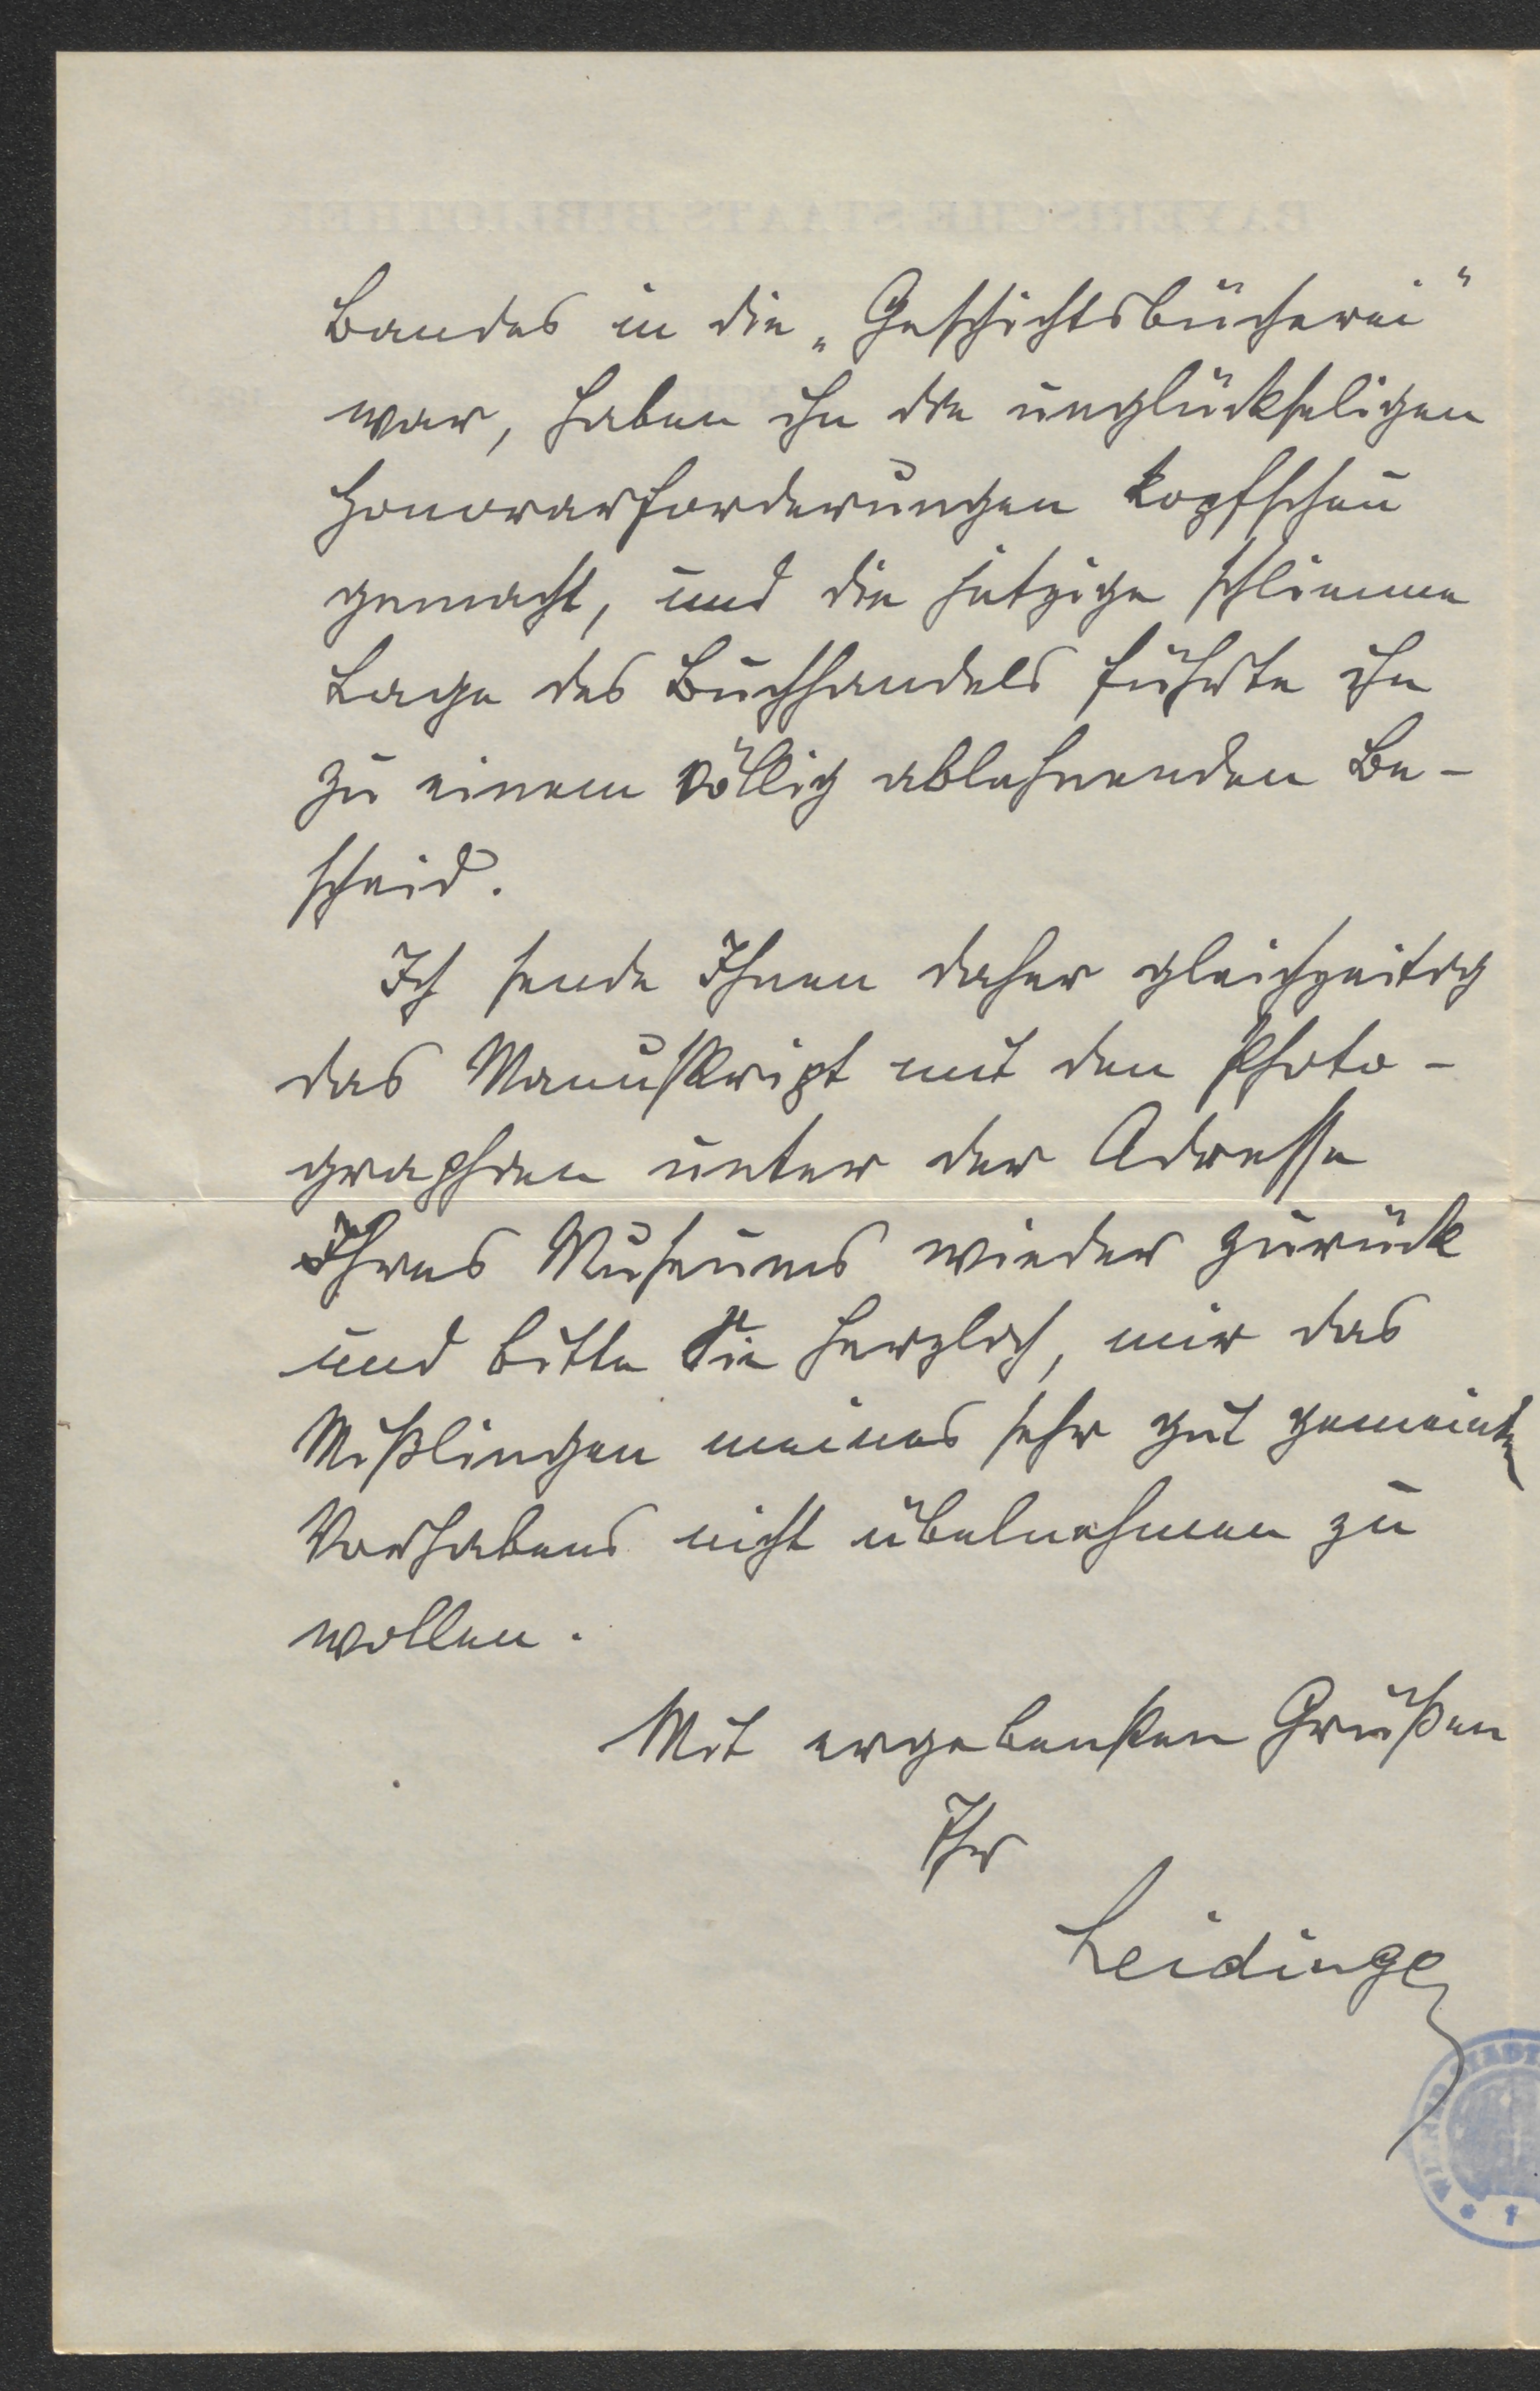 Bandes in die „Geschichtsbücherei“
war, haben ihn die unglückseligen
Honorarforderungen kopfscheu
gemacht, und die jetzige schlimme
Lage des Buchhandels führte ihn
zu einem völlig ablehnenden Be-
scheid.
Ich sende Ihnen daher gleichzeitig
das Manuskript mit den Photo-
graphien unter der Adresse
Ihres Museums wieder zurück
und bitte Sie herzlich, mir das
Mißlingen meines sehr gut gemeinten
Vorhabens nicht übelnehmen zu
wollen.
Mit ergebensten Grüßen
Ihr
Leidinger